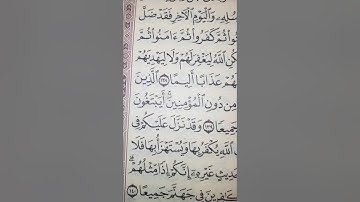 سُلِهِۦ وَٱلْيَوْمِ ٱلْءَاخِرِ فَقَدْ ضَلَّ
ثُمَّ كَفَرُوا۟ ثُمَّ ءَامَنُوا۟ ثُمَّ
كُنِ ٱللَّهُ لِيَغْفِرَ لَهُمْ وَلَا لِيَهْدِيَهُمْ
لَهُمْ عَذَابًا أَلِيمًا ١٣٨ ٱلَّذِينَ
مِن دُونِ ٱلْمُؤْمِنِينَ ۚ أَيَبْتَغُونَ
جَمِيعًا ١٣٩ وَقَدْ نَزَّلَ عَلَيْكُمْ فِى
ٱللَّهِ يُكْفَرُ بِهَا وَيُسْتَهْزَأُ بِهَا فَلَا
حَدِيثٍ غَيْرِهِۦٓ ۚ إِنَّكُمْ إِذًا مِّثْلُهُمْ ۗ
كَٰفِرِينَ فِى جَهَنَّمَ جَمِيعًا ١٤٠